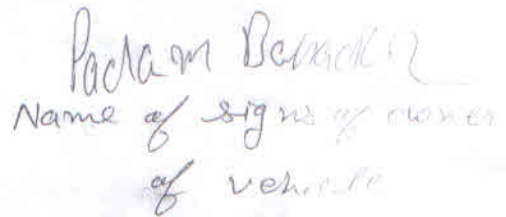 Padam Bahadur
Name of signs of owner
of vehicle